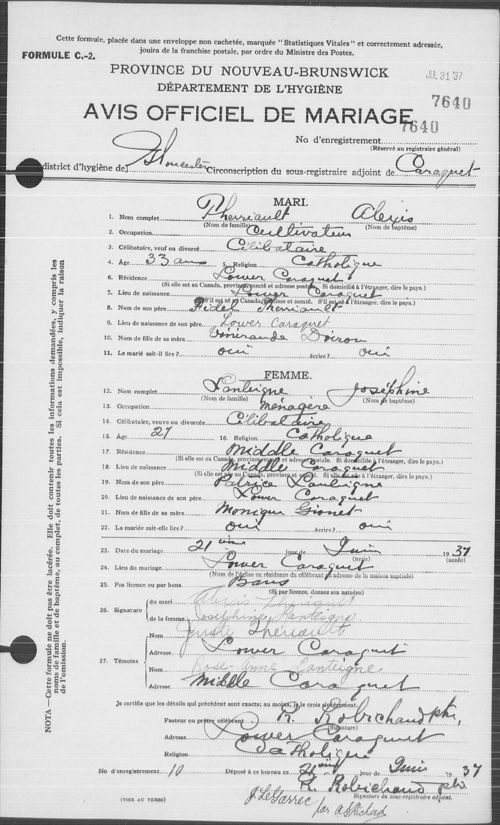 Cette formule, placée dans une enveloppe non cachetée, marquée "Statistiques Vitales" et correctement adressée,
jouira de la franchise postale, par ordre du Ministre des Postes.
FORMULE C.-2.
PROVINCE DU NOUVEAU-BRUNSWICK
JUL 31 '37
DÉPARTEMENT DE L'HYGIÈNE
7640
AVIS OFFICIEL DE MARIAGE
7640
No d'enregistrement
(Réservé au registraire général)
district d'hygiène de Gloucester Circonscription du sous-registraire adjoint de Caraquet
MARI.
1. Nom complet Therriault Alexis
(Nom de famille) (Nom de baptême)
2. Occupation Cultivateur
3. Célibataire, veuf ou divorcé Célibataire
4. Age 33 ans 5. Religion Catholique
6. Résidence Lower Caraquet
(Si elle est au Canada, province et comté et adresse postale. Si domicilié à l'étranger, dire le pays.)
7. Lieu de naissance Lower Caraquet
(S'il est né au Canada, province et comté. S'il est né à l'étranger, dire le pays.)
8. Nom de son père Therriault
9. Lieu de naissance de son père Lower Caraquet
10. Nom de fille de sa mère Vénérande Doiron
11. Le marié sait-il lire? oui écrire? oui
FEMME.
12. Nom complet Lanteigne Joséphine
(Nom de famille) (Nom de baptême)
13. Occupation ménagère
14. Célibataire, veuve ou divorcée Célibataire
15. Age 27 16. Religion Catholique
17. Résidence Middle Caraquet
(Si elle est au Canada, province et comté et adresse postale. Si domiciliée à l'étranger, dire le pays.)
18. Lieu de naissance Middle Caraquet
(Si elle est née au Canada, province et comté. Si née à l'étranger, dire le pays.)
19. Nom de son père Patrice Lanteigne
20. Lieu de naissance de son père Lower Caraquet
21. Nom de fille de sa mère Monique Gionet
22. La mariée sait-elle lire? oui écrire? oui
23. Date du mariage 21 ième jour de Juin 1937
(mois) (année)
24. Lieu du mariage Lower Caraquet
(Nom de l'église ou résidence du célébrant ou adresse de la maison nuptiale)
25. Par licence ou par bans Bans
(Si par licence, donner son numéro)
26. Signature
du mari Alexis Theriault
de la femme Joséphine Lanteigne
27. Témoins
Nom Theriault
Adresse Lower Caraquet
Nom Rose-Anne Lanteigne
Adresse Middle Caraquet
Je certifie que les détails qui précèdent sont exacts; au moins, je le crois sincèrement.
Pasteur ou prêtre célébrant R. Robichaud ptre,
(Signature)
Adresse Lower Caraquet
Religion Catholique
No d'enregistrement 10 Déposé à ce bureau ce 21 ième jour de Juin 1937
R. Robichaud ptre
Signature du sous-registraire adjoint.
(VOIR AU VERSO)
J. LeGarrec
par
NOTA—Cette formule ne doit pas être lacérée. Elle doit contenir toutes les informations demandées, y compris les
noms de famille et de baptême, au complet, de toutes les parties. Si cela est impossible, indiquer la raison
de l'omission.